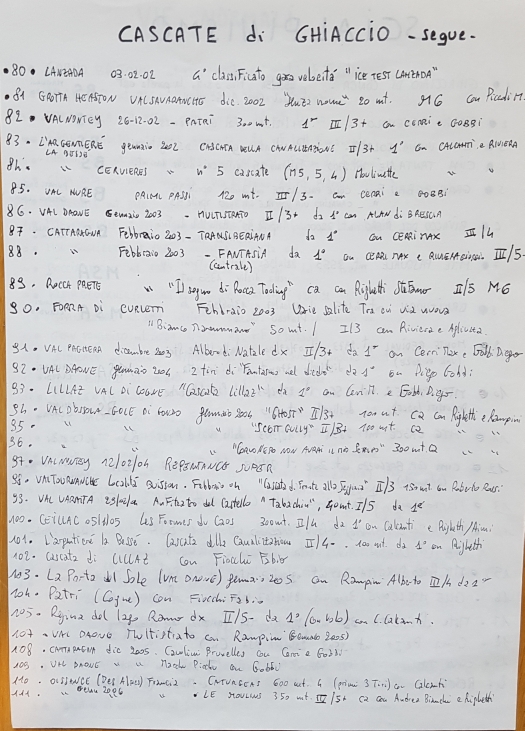 CASCATE di GHIACCIO - segue -
•80• LANZADA 03.02.02 4° classificato gara velocità "ICE TEST LANZADA"
•81 GROTTA HEASTON VALSAVARANCHE dic. 2002 20 mt. M6 con Piccoli M.
82• VALNONTEY 26-12-02 - PATRÌ 300 mt. 1° III/3+ con CERRI e GOBBI
83• L'ARGENTIERE LA BESSÈ gennaio 2002 CASCATA DELLA CANALIZZAZIONE II/3+ 1° con CALCANTI e RIVIERA
84• " CERVIERES " n° 5 cascate (M5, 5, 4) Moulinette " "
85. VAL NURE PRIMI PASSI 120 mt. III/3- con CERRI e GOBBI
86- VAL DAONE Gennaio 2003 - MULTISTRATO II/3+ da 1° con ALAN di BRESCIA
87 - CATTARAGNA Febbraio 2003 - TRANSIBERIANA da 1° con CERRI MAX III/4
88 " Febbraio 2003 - FANTASIA (centrale) da 1° con CERRI MAX e III/5-
89. ROCCA PRETE " "Il sogno di Rocca Tooling" c2 con Righetti Stefano II/5 M6
90• FORRA DI CURLETTI Febbraio 2003 Varie salite Tra cui via nuova
"Bianco " 50 mt. / I/3 con Riviera e
91• VAL PAGHERA dicembre 2003 Albero di Natale dx II/3+ da 1° con Cerri Max e Gobbi Diego
92• VAL DAONE gennaio 2004 - 2 tiri di "Fantasma nel " da 1° con Diego Gobbi
93• LILLAZ VAL DI COGNE "Cascata Lillaz" da 1° con Cerri M. e Gobbi Diego.
94• VAL D'OSSOLA - GOLE DI GONDO gennaio 2004 "GHOST" II/3+ 100 mt c2 con Righetti e Rampini
95• " " " "SCOTT GULLY" II/3+ 100 mt. c2 " "
96• " " "CORVO NERO NON AVRAI IL MIO SCALPO" 300 mt.
97• VALNONTEY 12/02/04 REPENTANCE SUPER
98• VALTOURNANCHE località Buisson. Febbraio 04 "Cascata di fronte alla Seggiovia" II/3 150 mt. con Roberto Rossi
99• VAL VARAITA 25/02/04 Anfiteatro del Castello "Tabachin", 40 mt. I/5 da 1°
100• CEILLAC 05/1/05 Les Formes du Caos 300 mt. II/4 da 1° con Calcanti e Righetti/
101. L'argentiere la Bessè. Cascata della Canalizzazione II/4- . 100 mt. da 1° con Righetti
102• Cascata di LILLAZ con Fiocchi Fabio
103• La Porta del Sole (VAL DAONE) gennaio 2005 con Rampini Alberto III/4 da 1°
104• Patrì (Cogne) con Fiocchi Fabio
105• Regina del lago Ramo dx II/5- da 1° con C. Calcanti.
107 • VAL DAONE Multistrato con Rampini (Gennaio 2005)
108 • CATTARAGNA dic 2005. con Cerri e Gobbi
109• VAL DAONE " " con Gobbi
110• OISSANCE (Des Alpes) Francia • 600 mt. 4 (primi 3 Tiri) con Calcanti
111• " " Genn 2006 • LE MOULINS 350 mt. III/5+ c2 con Andrea Bianchi e Righetti